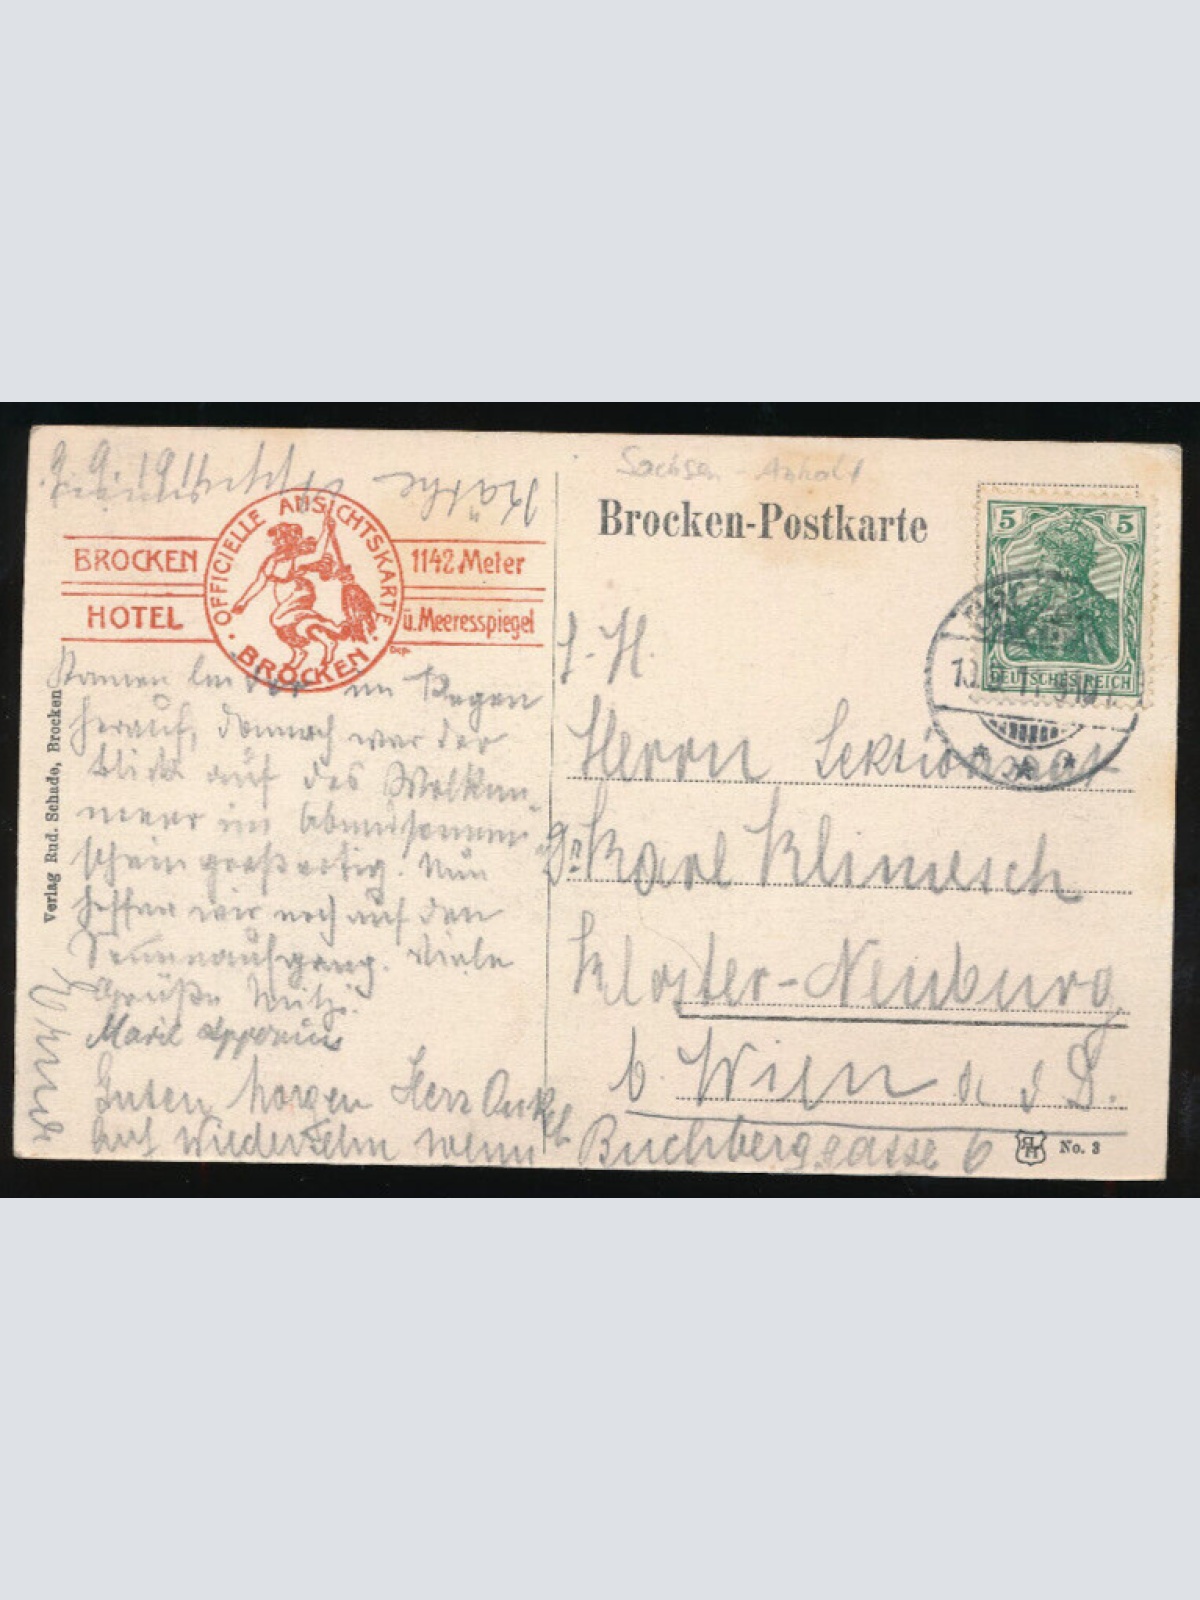 Sachsen-Anhalt
Brocken-Postkarte
5 5
DEUTSCHES REICH
OFFICIELLE ANSICHTSKARTE
BROCKEN
BROCKEN 1142 Meter
HOTEL ü. Meeresspiegel
Dep.
9.9.1911
Käthe
Kamen leider im Regen
herauf, dennoch war der
Blick auf das Wolken-
meer im Abendsonnen-
schein großartig. Nun
hoffen wir noch auf den
Sonnenaufgang. Viele
Grüße Mitzi.
Marie
Guten Morgen Herr Onkel
Auf Wiedersehn wenn
Verlag Rud. Schade, Brocken
S. H.
Herrn Sektionsrat
Dr. Karl Klimesch
Kloster-Neuburg
b. Wien a d D.
Buchberggasse 6
No. 3